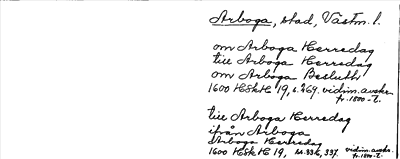 Arboga, stad, Västm. l.
om Arboga Herredag
till Arboga Herredag
om Arboga Besluth
1600 HSkH 19, s. 269. vidim. avskr.
fr. 1800-t.
till Arboga Herredag
ifrån Arboga
Arboga Herredag
1600 HSkH 19, ss. 336, 337. vidim. avskr.
fr. 1800-t.